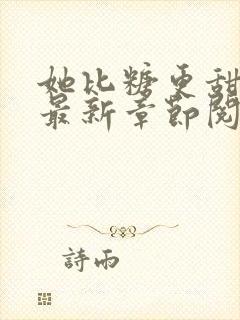 她比糖更甜
最新章節閱
詩雨